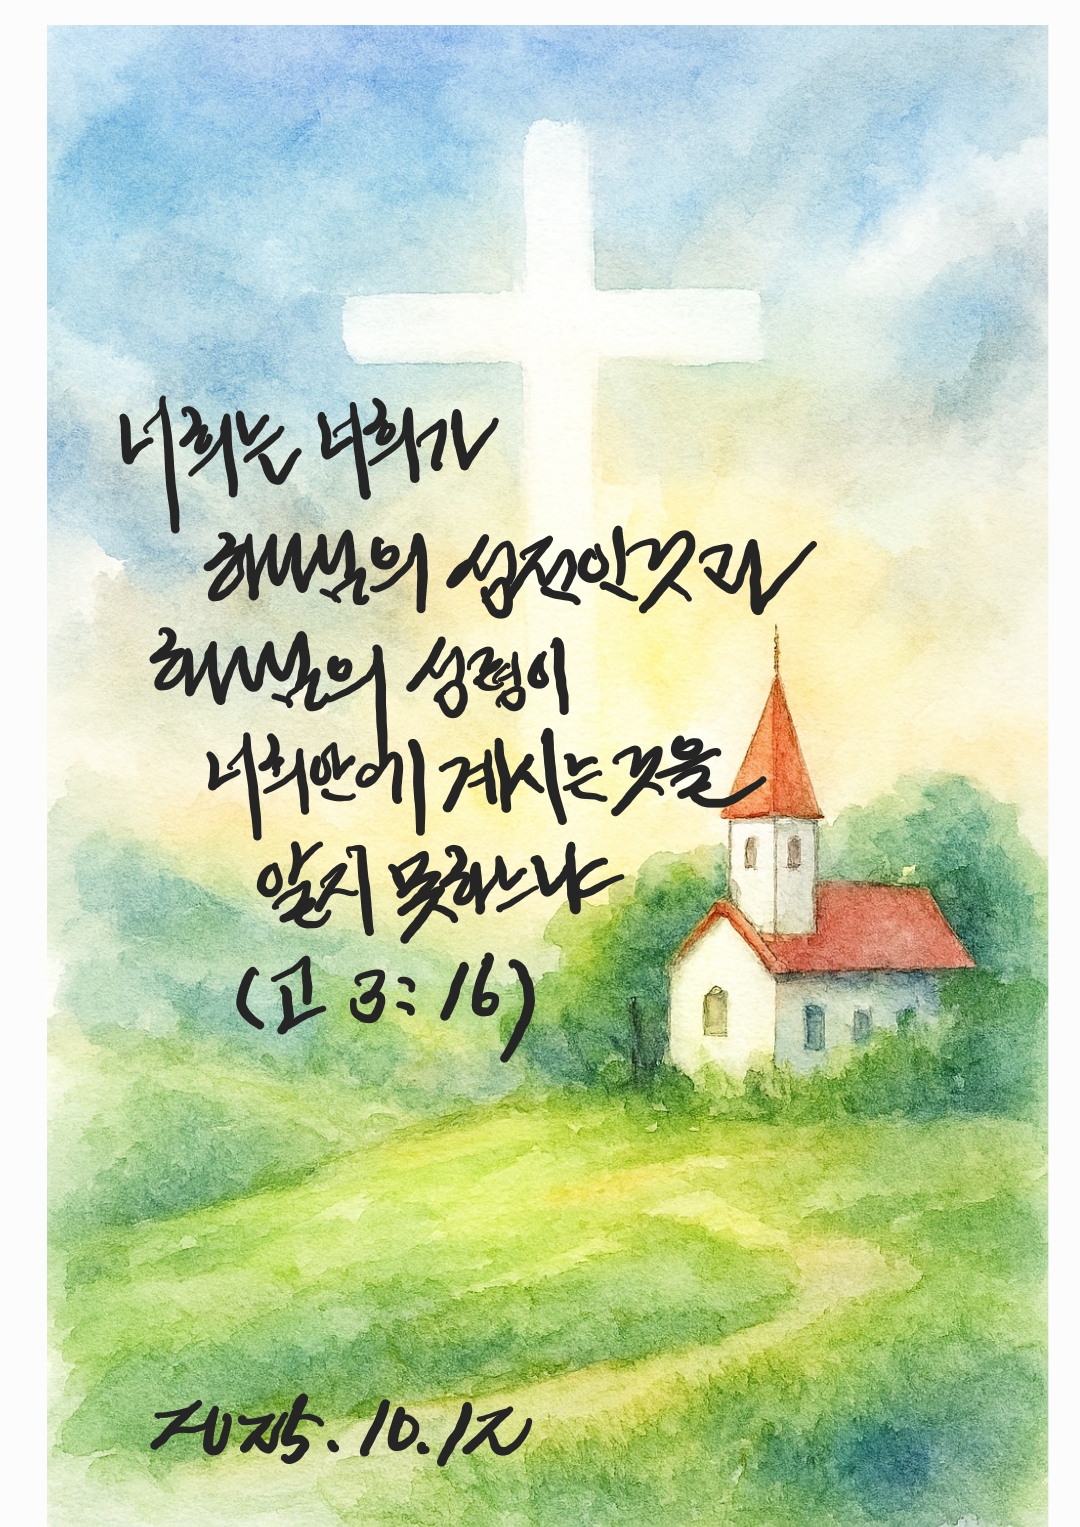 너희는 너희가
하나님의 성전인것과
하나님의 성령이
너희안에 계시는것을
알지 못하느냐
(고 3:16)
2025.10.12